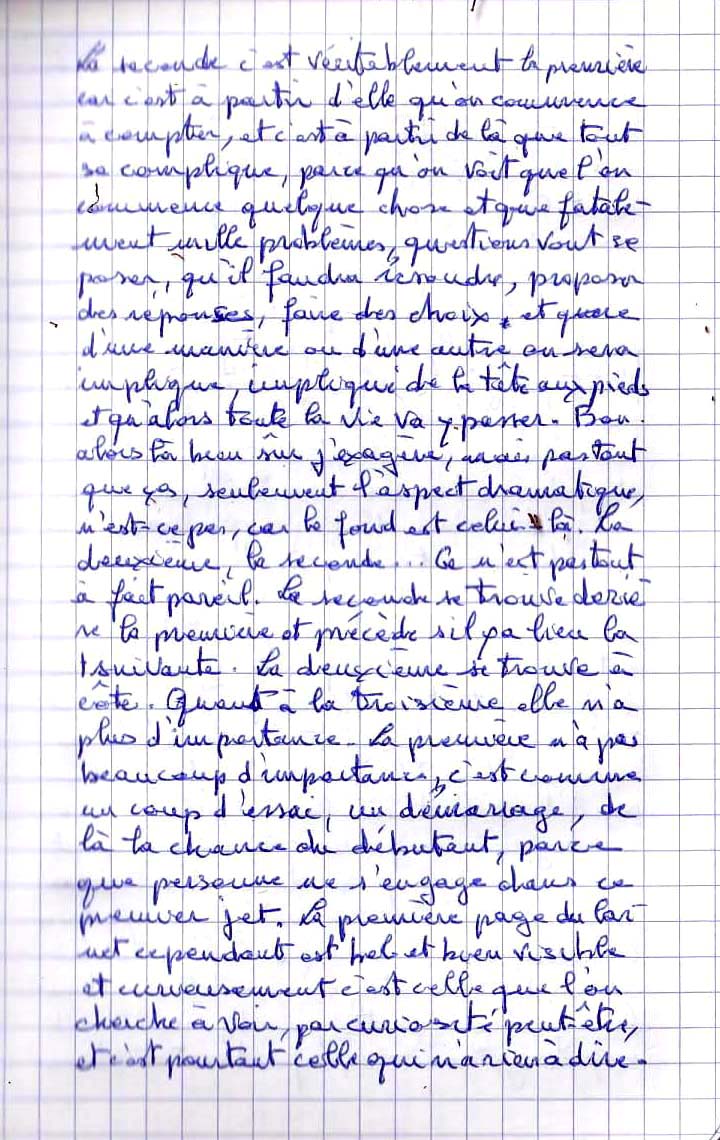 La seconde c'est véritablement la première
car c'est à partir d'elle qu'on commence
à compter, et c'est à partir de là que tout
se complique, parce qu'on voit que l'on
commence quelque chose et que fatale-
ment mille problèmes, questions vont se
poser, qu'il faudra résoudre, proposer
des réponses, faire des choix, et que
d'une manière ou d'une autre on sera
impliqué, impliqué de la tête aux pieds
et qu'alors toute la vie va y passer. Bon.
alors là bien sûr j'exagère, mais pas tant
que ça, seulement l'aspect dramatique,
n'est-ce pas, car le fond est celui là. La
deuxième, la seconde... Ce n'est pas tout
à fait pareil. La seconde se trouve deriè
re la première et précède s'il y a lieu la
suivante. La deuxième se trouve à
côté. Quant à la troisième elle n'a
plus d'importance. La première n'a pas
beaucoup d'importance, c'est comme
un coup d'essai, un démarrage, de
là la chance du débutant, parce
que personne ne s'engage dans ce
premier jet. La première page du car
net cependant est bel et bien visible
et curieusement c'est celle que l'on
cherche à voir, par curiosité peut-être,
et c'est pourtant celle qui n'a rien à dire.